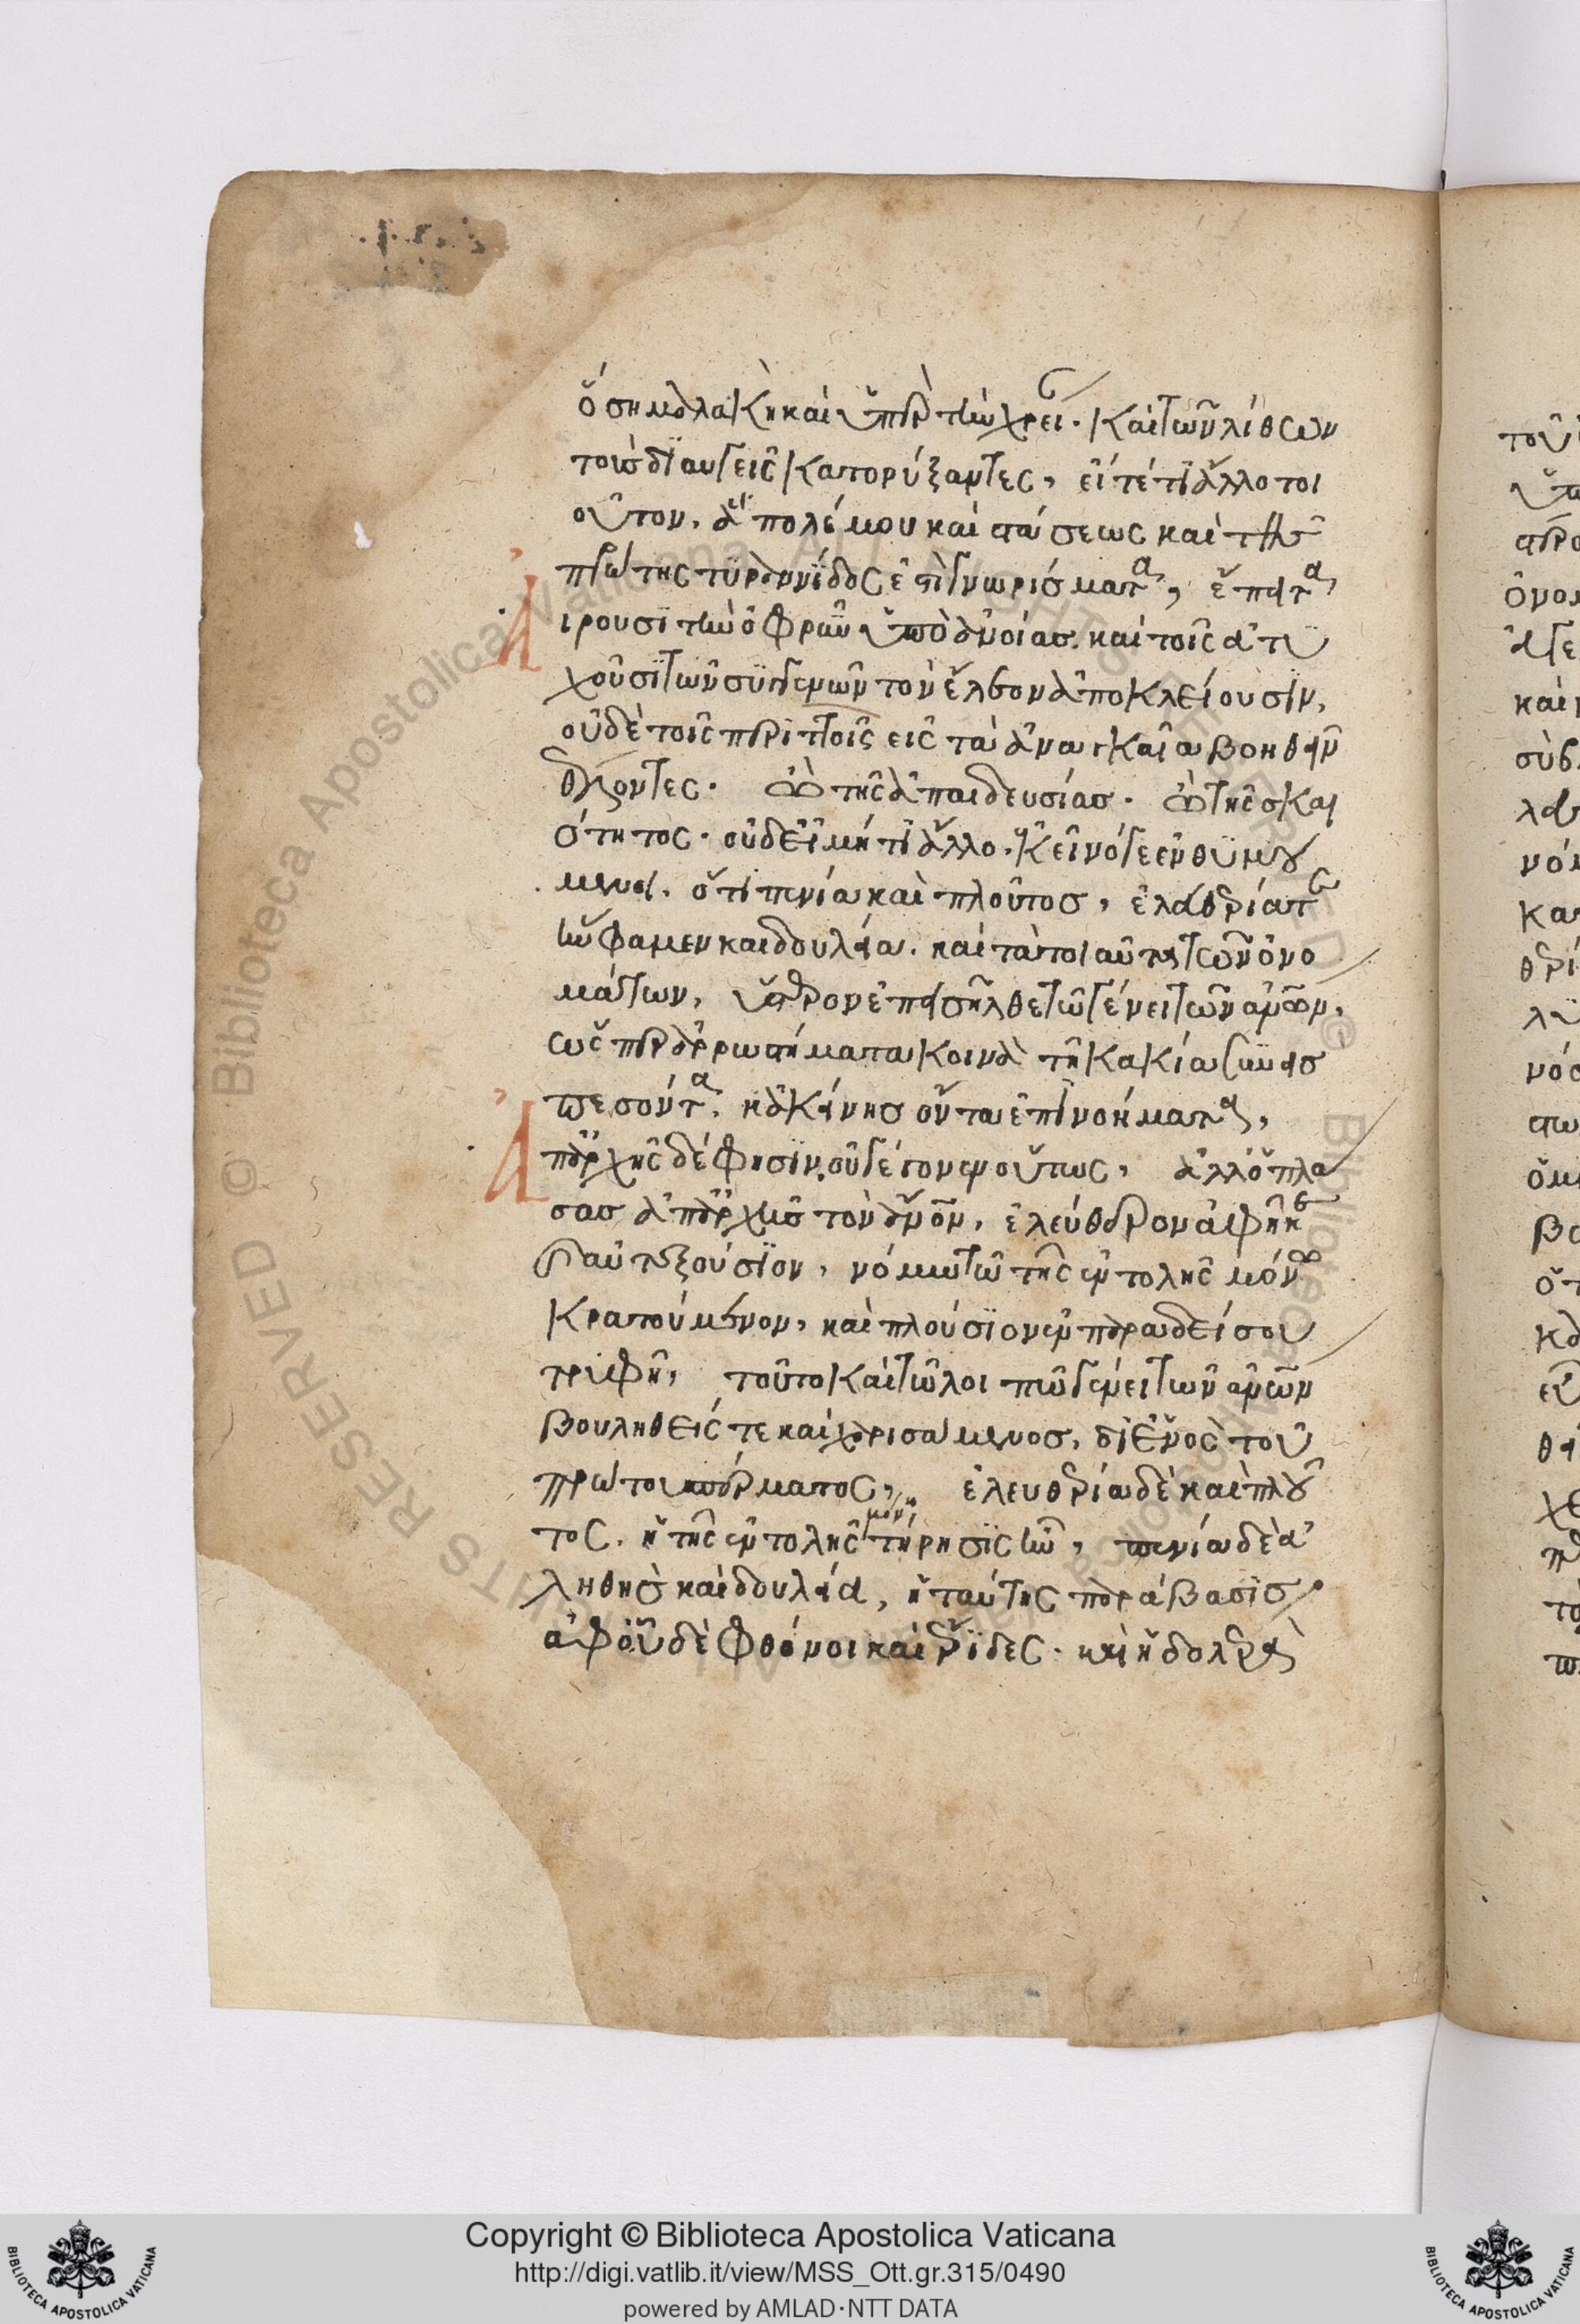 ὅση μαλακὴ καὶ ὑπὲρ τὴν χρείαν. καὶ τῶν λίθων
τοὺς διαυγεῖς κατορύξαντες, εἴτέ τι ἄλλο τοι
οῦτον, ἃ πολέμου καὶ στάσεως καὶ τῆς
πρώτης τυραννίδος ἐστὶ γνωρίσματα, ἔπειτα
αἴρουσι τὴν ὀφρῦν ὑπὸ ἀνοίας. καὶ τοῖς ἀτυ
χοῦσι τῶν συγγενῶν τὸν ἔλεον ἀποκλείουσιν,
οὐδὲ τοῖς περιττοῖς εἰς τὰ ἀναγκαῖα βοηθεῖν
θέλοντες. ὢ τῆς ἀπαιδευσίας. ὢ τῆς σκαι
ότητος. οὐδ' εἰ μή τι ἄλλο. ἐκεῖνό γε ἐνθυμού
μενοι. ὅτι πενία καὶ πλοῦτος, ἐλευθερία τε
ἣν φαμεν καὶ δουλεία. καὶ τὰ τοιαῦτα τῶν ὀνο
μάτων, ὕστερον ἐπεισῆλθε τῷ γένει τῶν ἀνων,
ὥσπερ ἀρρωστήματα κοινὰ τῇ κακία συνεισ
πεσόντα. κἀκείνης ὄντα ἐπινοήματα,
Ἀπαρχῆς δέ φησιν, οὐ γέγονεν οὕτως, ἀλλ' ὁ πλα
σας ἀπαρχῆς τὸν ἄνον, ἐλεύθερον ἀφῆκε
καὶ αὐτεξούσιον, νόμω τῷ τῆς ἐντολῆς μόνον
κρατούμενον, καὶ πλούσιον ἐν παραδείσου
τρυφῇ, τοῦτο καὶ τῷ λοιπῷ γένει τῶν ἀνων
βουληθείς τε καὶ χαρισάμενος, δι' ἑνὸς τοῦ
πρώτου σπέρματος, ἐλευθερία δὲ καὶ πλοῦ
τος. ἡ τῆς ἐντολῆς μόνη τήρησις ἦν, πενία δὲ ἀ
ληθὴς καὶ δουλεία, ἡ ταύτης παράβασις
ἀφ' οὗ δὲ φθόνοι καὶ ἔριδες. καὶ ἡ δολερὰ
Copyright © Biblioteca Apostolica Vaticana
http://digi.vatlib.it/view/MSS_Ott.gr.315/0490
powered by AMLAD·NTT DATA